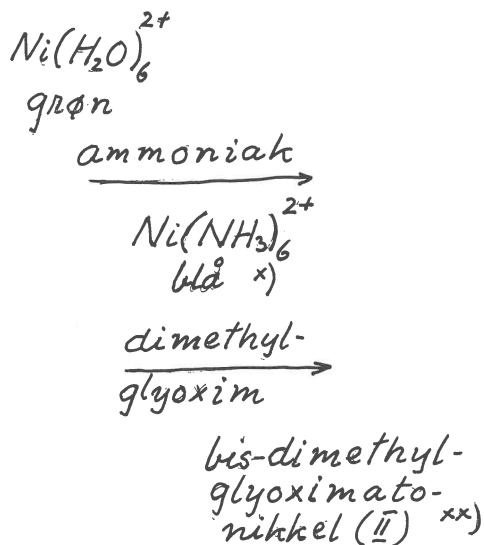 Ni(H₂O)₆²⁺
grøn
ammoniak
Ni(NH₃)₆²⁺
blå x)
dimethyl-
glyoxim
bis-dimethyl-
glyoximato-
nikkel (II) xx)